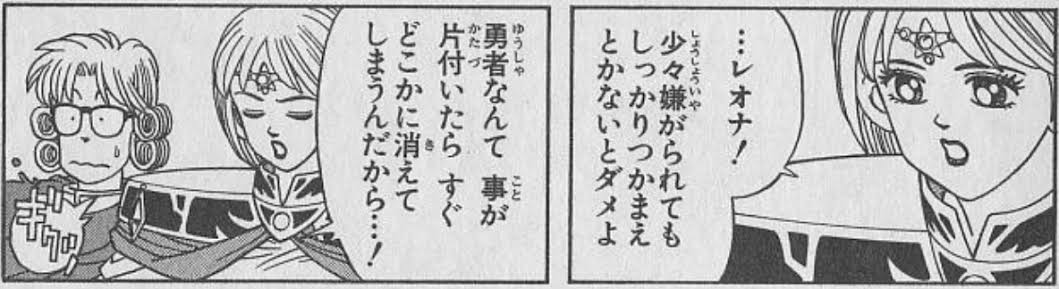 …レオナ！
少々嫌がられても
しっかりつかまえ
とかないとダメよ
勇者なんて 事が
片付いたら すぐ
どこかに消えて
しまうんだから…！
ギクッ